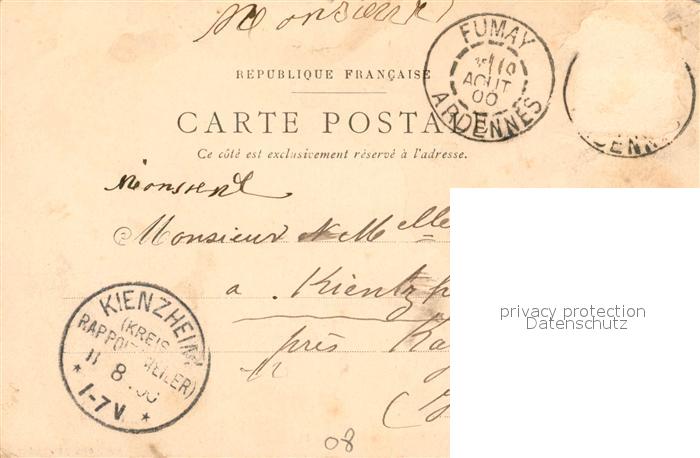 Monsieur
FUMAY
3E / 10
AOUT
00
ARDENNES
RÉPUBLIQUE FRANÇAISE
CARTE POSTALE
Ce côté est exclusivement réservé à l'adresse.
Monsieur
Monsieur & Melle
a Kientzh
près Kay
KIENZHEIM
(KREIS
RAPPOLTSWEILER)
11 8 00
* 1-7V *
privacy protection
Datenschutz
08